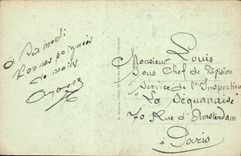 à Samedi
Bonnes poignées
de main
Monsieur Louis
Sous Chef de Division
Service de l'Inspection
La Séquanaise
70 Rue d'Amsterdam
à Paris